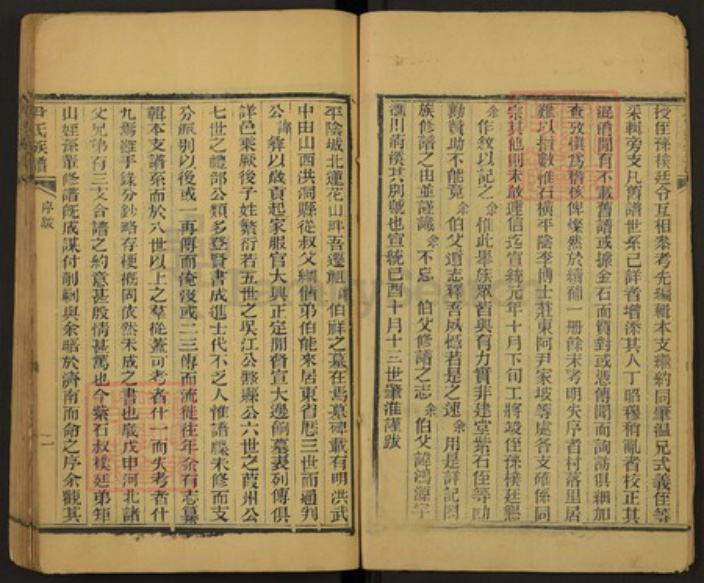 授侄孫樸廷令互相叅考先編輯本支繼約同肇溫兄式義侄等
采輯旁支凡舊譜世系已詳者增添其人丁昭穆稍亂者校正其
混淆間有不載舊譜或據金石而質對或憑傳聞而詢訪俱細加
查攷慎爲稽核俾燦然於續補一册餘未考明失序者村落里居
難以指數惟石橫平陰李博士莊東阿尹家坡等處各支確係同
宗其他則未敢遽信迄宣統元年十月下旬工將竣侄孫樸廷懇
余作敘以記之余惟此舉族眾皆與有力實非建堂紫石侄等助
勷贊助不能竟余伯父遺志釋吾憾若是之速余用是詳記閤
族修譜之由並謹識余不忘伯父修譜之志余伯父諱鴻源字
漁川漪濮其別號也宣統己酉十月十三世肇淮謹跋
平陰城北蓮花山畔吾遷祖諱伯祥之墓在焉墓碑載有明洪武
中由山西洪洞縣從叔父繼偕弟伯能來居東省歷三世而通判
公諱彝以歲貢起家服官大興正定開晉宣大邊餉墓表列傳俱
詳邑乘厥後子姓繁衍若五世之吳江公滕縣公六世之葭州公
七世之禮部公類多登賢書成進士代不乏人惟譜牒未修而支
分派別以後或一再傳而淹沒或二三傳而流徙往年余有志纂
輯本支譜系而於八世以上之羣從蓋可考者什一而失考者什
九焉雖手錄分鈔略存梗概固依然未成之書也歲戊申河北諸
父兄弟有三支合譜之約意甚殷情甚篤也今紫石叔樸廷弟矩
山姪孫肇修譜旣成謀付剞劂與余晤於濟南而命之序余觀其
尹氏族譜
序跋
一